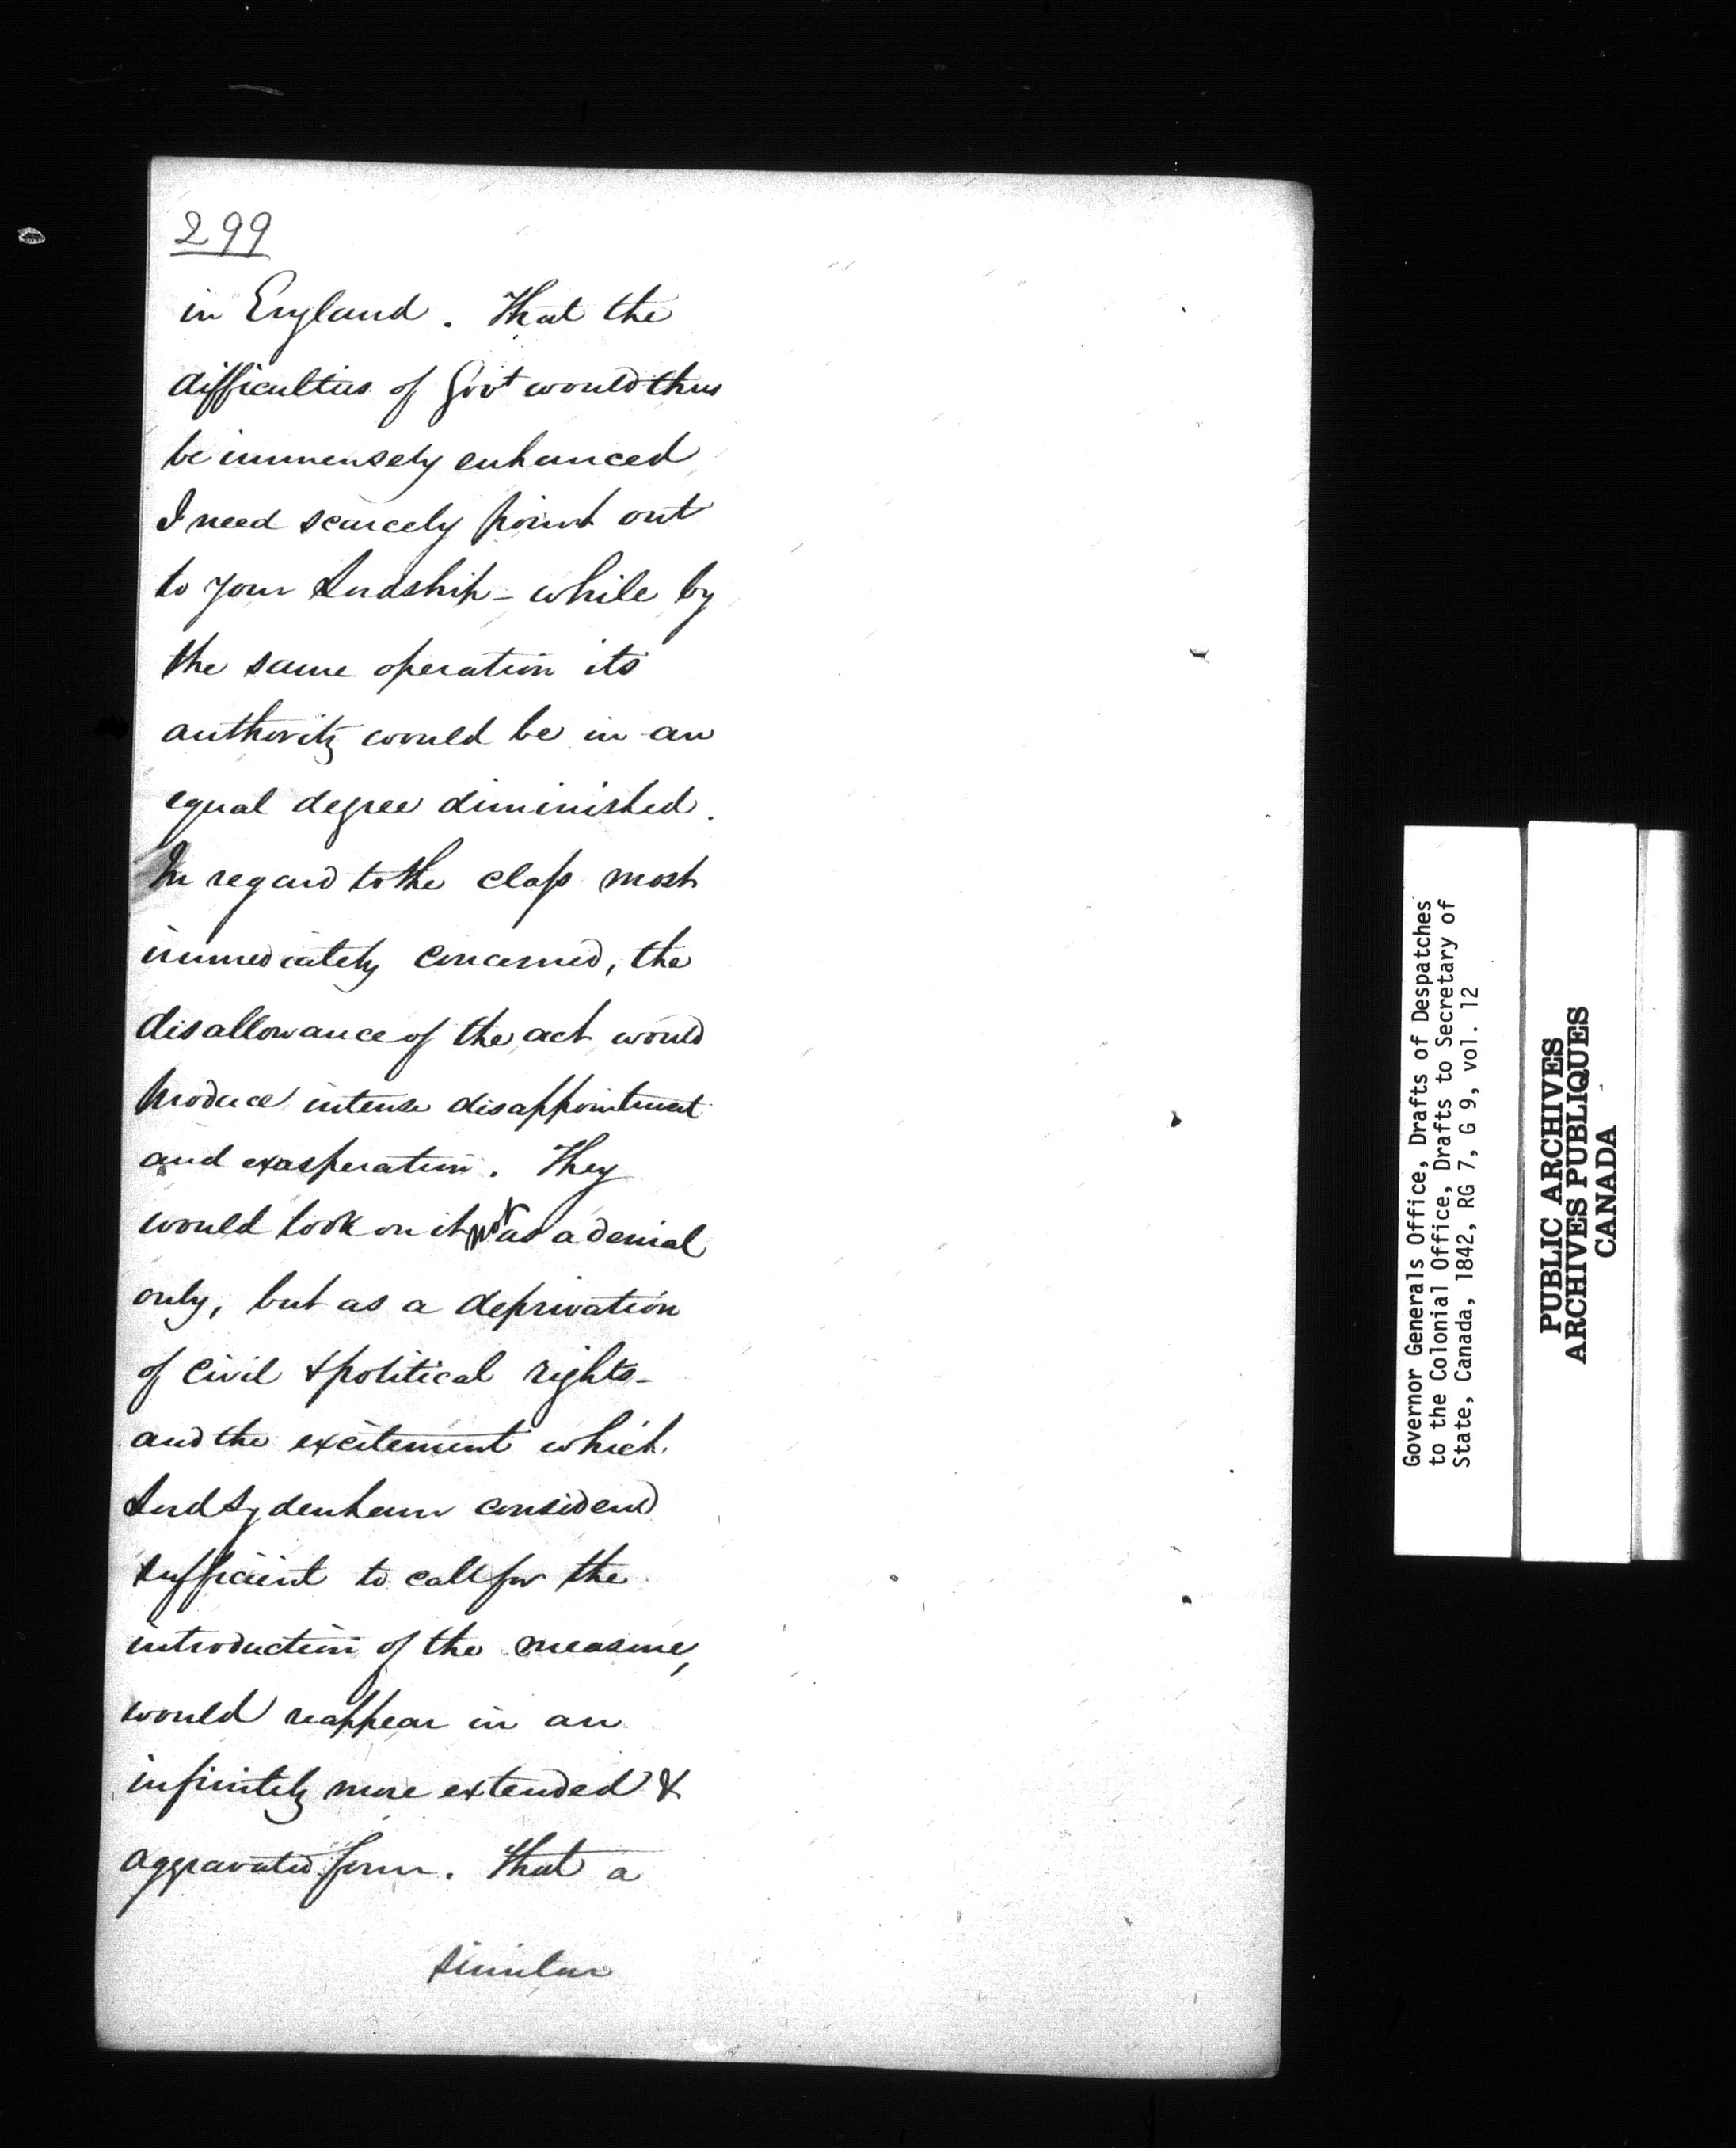 299
in England. That the
difficulties of Govt would thus
be immensely enhanced
I need scarcely point out
to your Lordship - while by
the same operation its
authority would be in an
equal degree diminished.
In regard to the class most
immediately concerned, the
disallowance of the act would
produce intense disappointment
and exasperation. They
would look on it not as a denial
only, but as a deprivation
of civil & political rights -
and the excitement which
Lord Sydenham considered
sufficient to call for the
introduction of the measure,
would reappear in an
infinitely more extended &
aggravated form. That a
similar
Governor Generals Office, Drafts of Despatches
to the Colonial Office, Drafts to Secretary of
State, Canada, 1842, RG 7, G 9, vol. 12
PUBLIC ARCHIVES
ARCHIVES PUBLIQUES
CANADA